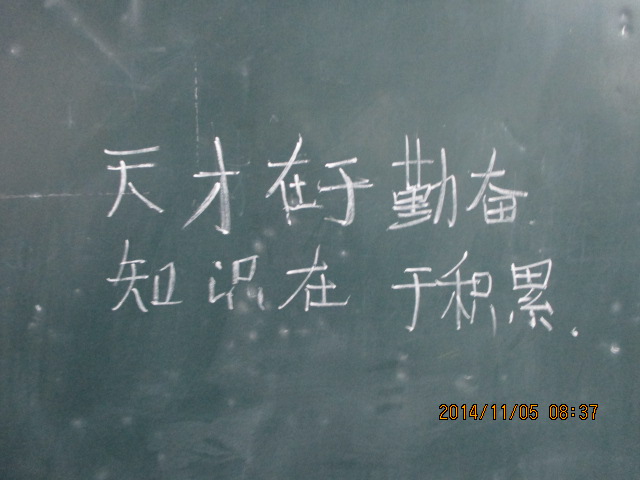 天才在于勤奋
知识在于积累.
2014/11/05 08:37